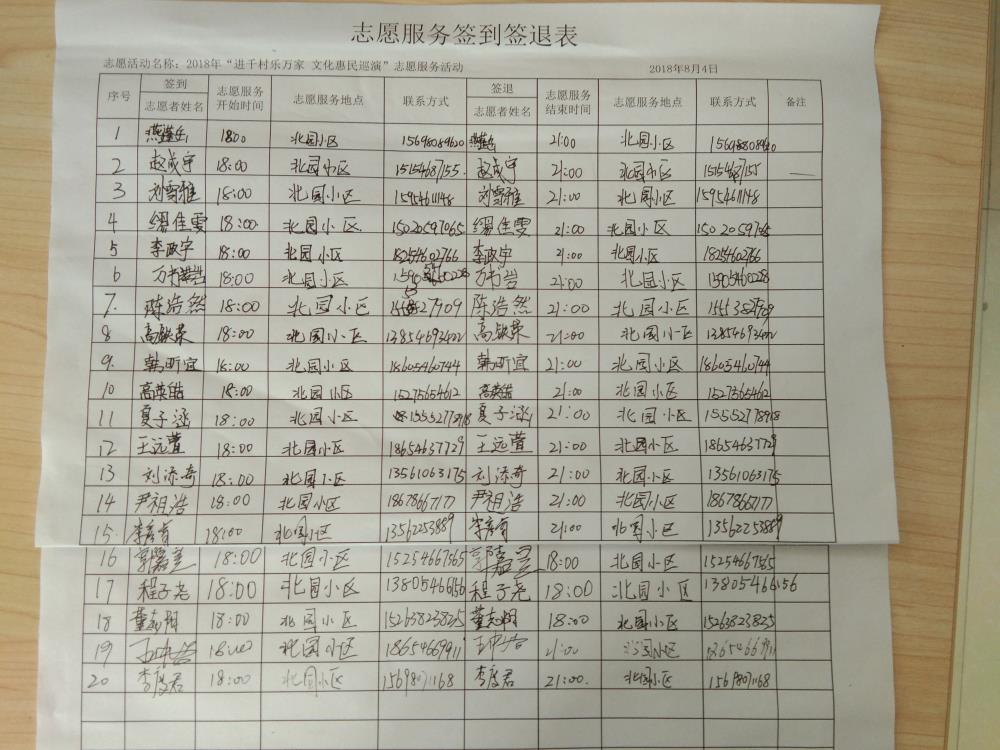 志愿服务签到签退表
志愿活动名称：2018年“进千村乐万家 文化惠民巡演”志愿服务活动 2018年8月4日
序号 签到 志愿者姓名 志愿服务开始时间 志愿服务地点 联系方式 签退 志愿者姓名 志愿服务结束时间 志愿服务地点 联系方式 备注
1 18:00 北园小区 21:00 北园小区
2 赵成宇 18:00 北园小区 15154687155 赵成宇 21:00 北园小区 15154687155
3 刘雪雅 18:00 北园小区 15954611148 刘雪雅 21:00 北园小区 15954611148
4 缪佳雯 18:00 北园小区 15020597065 缪佳雯 21:00 北园小区
5 李政宇 18:00 北园小区 18254602766 李政宇 21:00 北园小区 18254602766
6 18:00 北园小区 21:00 北园小区 15905460228
7. 陈浩然 18:00 北园小区 陈浩然 21:00 北园小区
8 18:00 北园小区 13854693402 21:00 北园小区 13854693402
9. 韩昕宜 18:00 北园小区 18605460744 韩昕宜 21:00 北园小区 18605460744
10 高英皓 18:00 北园小区 15275654612 高英皓 21:00 北园小区
11 夏子涵 18:00 北园小区 夏子涵 21:00 北园小区 15552778918
12 王远萱 18:00 北园小区 18654637729 王远萱 21:00 北园小区 18654637729
13 刘添奇 18:00 北园小区 13561063175 刘添奇 21:00 北园小区 13561063175
14 尹祖浩 18:00 北园小区 18678667177 尹祖浩 21:00 北园小区 18678667177
15. 18:00 北园小区 13562253889 21:00 北园小区 13562253889
16 18:00 北园小区 15254667565 18:00 北园小区 15254667565
17 程子尧 18:00 北园小区 13805466156 程子尧 18:00 北园小区 13805466156
18 董志翔 18:00 北园小区 15263823825 董志翔 18:00 北园小区 15263823825
19 18:00 北园小区 18654669911 21:00 北园小区 18654669911
20 李度君 18:00 北园小区 15698071168 李度君 21:00. 北园小区 15698071168